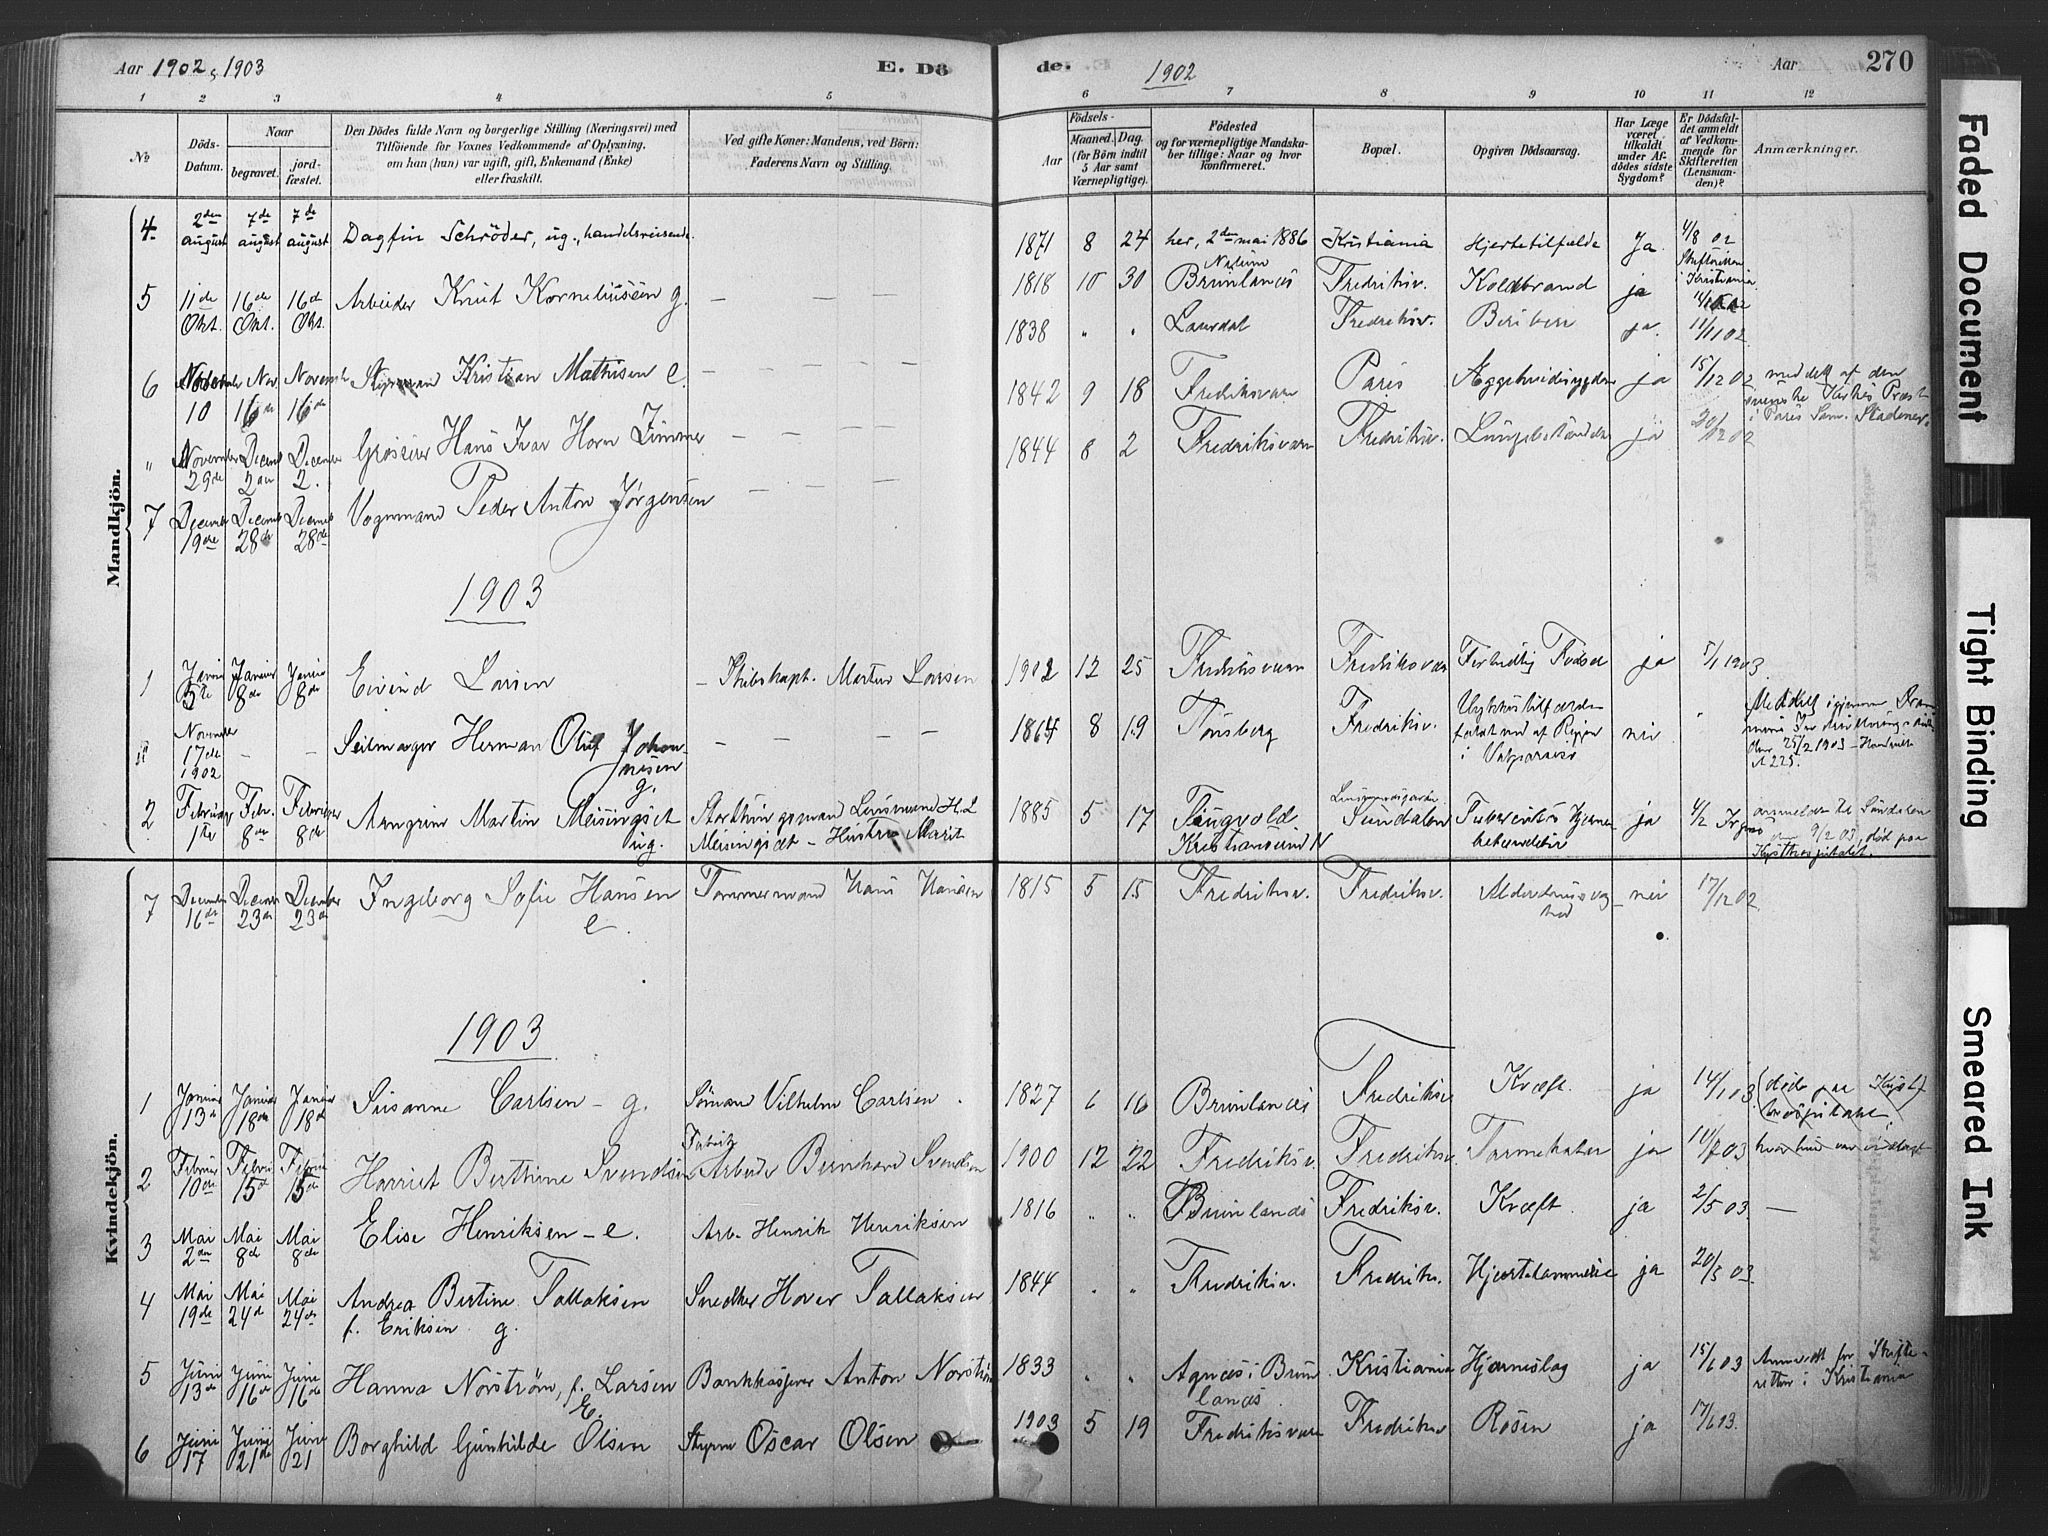 Aar 1902 & 1903
E. Dö
de.
1902
Aar
270
1 2 3 4 5 6 7 8 9 10 11 12
No
Döds-
Datum.
Naar
begravet.
jord-
fæstet.
Den Dödes fulde Navn og borgerlige Stilling (Næringsvei) med
Tilföiende for Voxnes Vedkommende af Oplysning,
om han (hun) var ugift, gift, Enkemand (Enke)
eller fraskilt.
Ved gifte Koner: Mandens, ved Börn:
Faderens Navn og Stilling.
Födsels-
Aar
Maaned. Dag.
(for Börn indtil
5 Aar samt
Værnepligtige).
Födested
og for værnepligtige Mandska-
ber tillige: Naar og hvor
konfirmeret.
Bopæl.
Opgiven Dödsaarsag.
Har Læge
været
tilkaldt
under Af-
dödes sidste
Sygdom?
Er Dödsfal-
det anmeldt
af Vedkom-
mende for
Skifteretten
(Lensman-
den)?
Anmærkninger.
Mandkjön.
4. 2den august 7de august 7de august Dagfin Schröder, ug., handelsreisende. 1871 8 24 her, 2den mai 1886 Kristiania Hjertetilfælde Ja 4/8 02
Skifteretten i Kristiania
5 11de Okt. 16de Okt. 16de Okt. Arbeider Knut Korneliussen g. — 1818 10 30 Brunlanes Fredriksv. Koldbrand ja
1838 " " Laurdal Fredriksv. Beriberi ja. 11/11 02
6 November 10 Nov. 16de November 16de Styrmand Kristian Mathisen e. — — — —
1842 9 18 Fredriksværn Paris Æggehvidesygdom ja 15/12 02 meddelt af den
svenske Kirkes Præst
i Paris
" November 29de December 2den December 2. Grosserer Hans Ivar Horn Zimmer — — — —
1844 8 2 Fredriksværn Fredriksv. Lungebetændelse ja 20/12 02
7 December 19de December 28de December 28de Vognmand Peder Anton Jørgensen — — — —
1903
1 Januar 5te Januar 8de Januar 8de Eivind Larsen — Skibskapt. Morten Larsen 1902 12 25 Fredriksværn Fredriksværn Fortidlig Fødsel ja 5/1 1903.
November 17de 1902 — — Seilmager Herman Oluf Johannesen g. — — — — — 1864 8 19 Tønsberg Fredriksv. Ulykkestilfælde
faldt ned af Riggen
i Valparaiso nei " Meddelt igjennem
25/2 1903
No 225.
2 Februar 1ste Febr. 8de Februar 8de Arngrim Martin Meisingset ug. Storthingsmand Lensmand H. L.
Meisingset — Hustru Marit 1885 5 17 Tingvold
Kristiansund N Lensmandsgaarden
Sundalen Tuberkuløs Hjerne-
betændelse ja 4/2 anmeldt til Sundalen
9/2 03, død paa
Kysthospitalet.
Kvindekjön.
7 December 16de December 23de December 23de Ingeborg Sofie Hansen e. Tømmermand Hans Hansen 1815 5 15 Fredriksv. Fredriksv. Alderdomssvaghed nei 17/12 02.
1903
1 Januar 13de Januar 18de Januar 18de Susanne Carlsen – g. Sømand Vilhelm Carlsen. 1827 6 16 Brunlanes Fredriksv Kræft. ja 14/1 03. (død paa Kyst-
hospitalet
2 Februar 10de Februar 15de Februar 15de Harriet Berthine Svendsen Fabrik
Arbeider Bernhard Svendsen 1900 12 22 Fredriksv. Fredriksv. Tarmekatar ja 10/2 03 hvor hun var indlagt
3 Mai 2den Mai 8de Mai 8de Elise Henriksen – e. Arb. Henrik Henriksen 1816 " " Brunlanes Fredriksv. Kræft ja 2/5 03. —
4 Mai 19de Mai 24de Mai 24de Andrea Bertine Tallaksen
f. Eriksen. g. Snedker Hover Tallaksen 1844 " " Fredriksv. Fredriksv. Hjertelammelse ja 20/5 03.
5 Juni 13de Juni 16de Juni 16de Hanna Norström, f. Larsen
E. Bankkasserer Anton Norström 1833 " " Agnæs i Brun-
lanes. Kristiania Hjerneslag ja 15/6 03 Anmeldt for Skifte-
retten i Kristiania
6 Juni 17 Juni 21de Juni 21 Borghild Gunhilde Olsen Styrm Oscar Olsen 1903 5 19 Fredriksværn Fredriksv Rosen ja 17/6 03.
Faded Document
Tight Binding
Smeared Ink